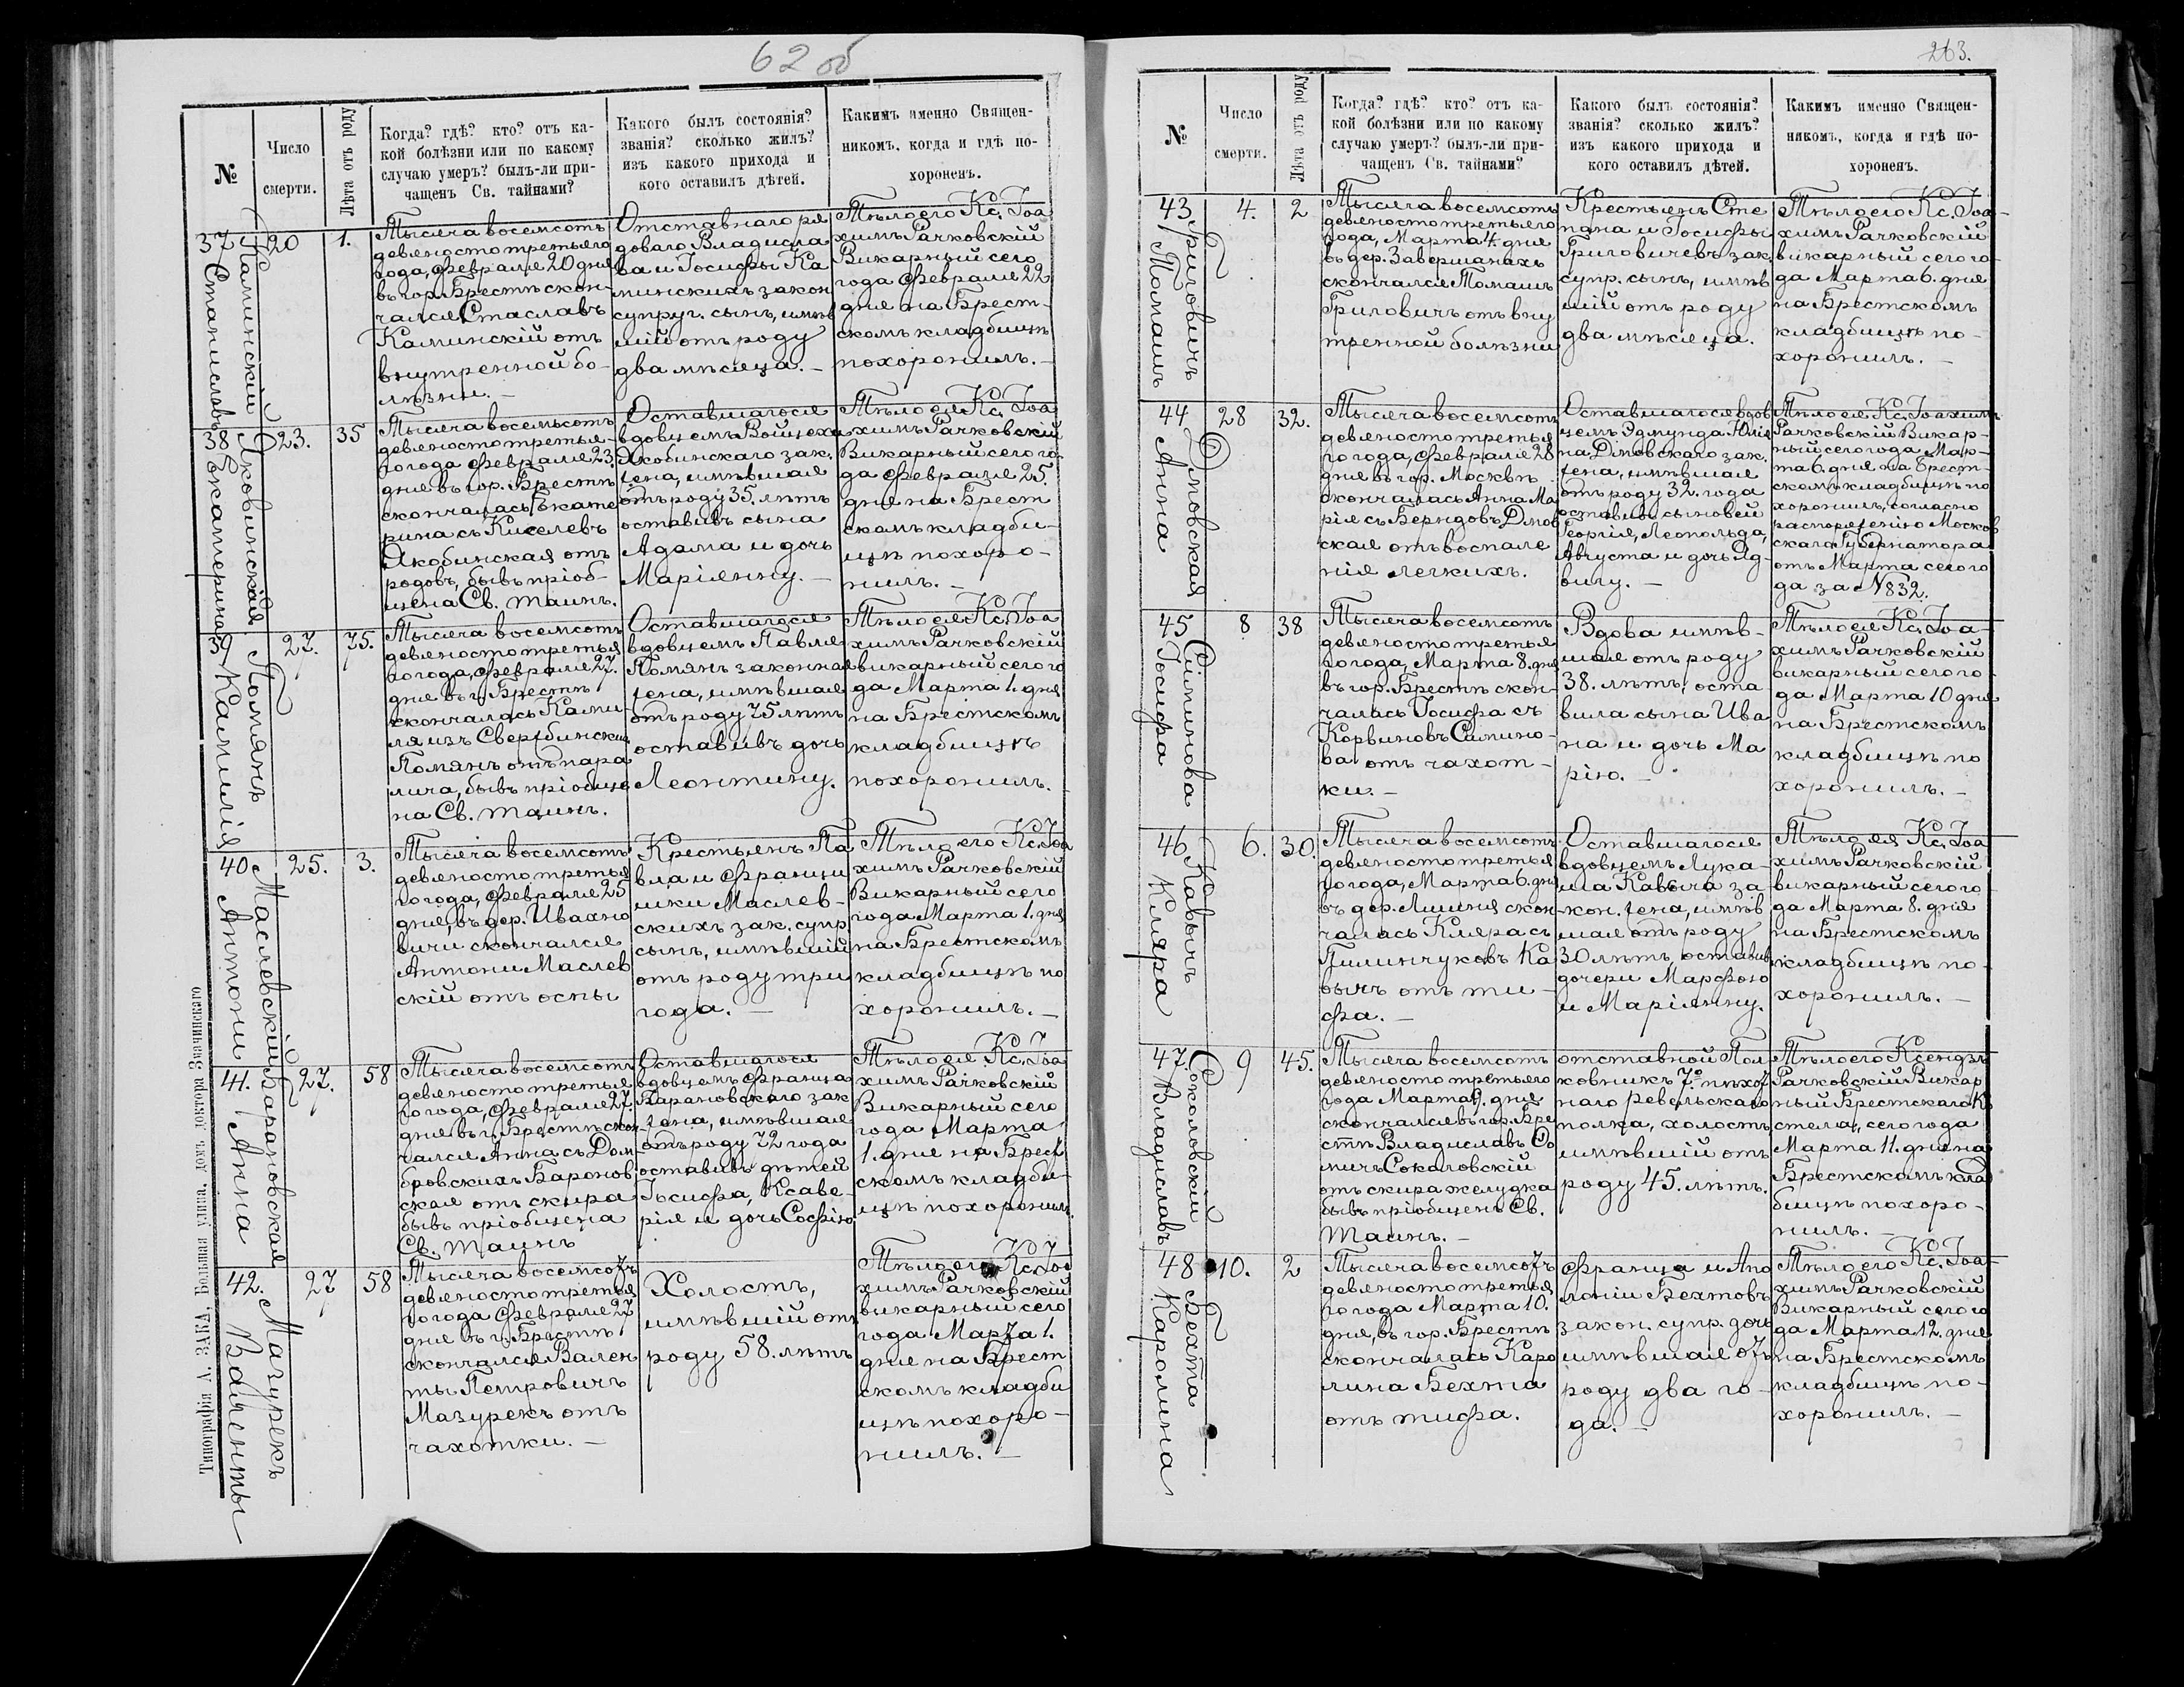 62 об
№
Число
смерти.
Лѣта отъ роду
Когда? гдѣ? кто? отъ ка-
кой болѣзни или по какому
случаю умеръ? былъ-ли при-
чащенъ Св. тайнами?
Какого былъ состоянія?
званія? сколько жилъ?
изъ какого прихода и
кого оставилъ дѣтей.
Какимъ именно Священ-
никомъ, когда и гдѣ по-
хороненъ.
37
Каминскій
Станиславъ
20
1.
Тысяча восемсотъ
девяносто третьяго
года, Февраля 20 дня
въ гор. Брестѣ скон-
чался Стаславъ
Каминскій отъ
внутренной бо-
лѣзни. –
Отставнаго ря
доваго Владисла
ва и Іосифы Ка
минскихъ закон
супруг. сынъ, имѣв
шій отъ роду
два мѣсяца. –
Тѣло его Кс. Іоа
химъ Рачковскій
Викарный сего
года Февраля 22
дня на Брест-
скомъ кладбищѣ
похоронилъ. –
38
Якобинская
Екатерина
23.
35
Тысяча восемьсотъ
девяносто третья-
го года Февраля 23.
дня въ гор. Брестѣ
скончалась Екате
рина съ Киселевъ
Якобинская отъ
родовъ, бывъ пріоб-
щена Св. таинъ.
Оставшагося
вдовцемъ Войцеха
Якобинскаго зак.
жена, имѣвшая
отъ роду 35. лѣтъ
оставивъ сына
Адама и дочь
Маріянну. –
Тѣло ея Кс. Іоа
химъ Рачковскій
Викарный сего го-
да Февраля 25.
дня на Брест
скомъ кладби-
щѣ похоро-
нилъ. –
39
Помянъ
Камилія
27.
75.
Тысяча восемсотъ
девяносто третья
го года, Февраля 27.
дня въ г. Брестѣ
скончалась Ками-
ля изъ Свержбинскихъ
Помянъ отъ пара
лича, бывъ пріобще
на Св. таинъ.
Оставшагося
вдовцемъ Павля
Помянъ законная
жена, имѣвшая
отъ роду 75 лѣтъ
оставивъ дочь
Леонтину.
Тѣло ея Кс. Іоа
химъ Рачковскій
викарный сего го
да Марта 1. дня
на Брестскомъ
кладбищѣ
похоронилъ. –
40
Маслевскій
Антони
25.
3.
Тысяча восемсотъ
девяносто третья
го года, Февраля 25
дня, въ дер. Ивахно
вичи скончался
Антони Маслев
скій отъ оспы
Крестьянъ Па
вла и Францы
шки Маслев-
скихъ зак. супр.
сынъ, имѣвшій
отъ роду три
года. –
Тѣло его Кс. Іоа
химъ Рачковскій
Викарный сего
года Марта 1. дня
на Брестскомъ
кладбищѣ по
хоронилъ. –
41.
Барановская
Анна
27.
58
Тысяча восемсотъ
девяносто третья
го года, Февраля 27.
дня въ г. Брестѣ скон-
чался Анна съ Дом-
бровскихъ Баронов
ская отъ скира
бывъ пріобщена
Св. таинъ
Оставшагося
вдовцемъ Франца
Барановскаго зак
жена, имѣвшая
отъ роду 72 года
оставивъ дѣтей
Іосифа, Ксаве-
рія и дочь Софію
Тѣло ея Кс. Іоа
химъ Рачковскій
Викарный сего
года Марта
1. дня на Брест
скомъ кладби-
щѣ похоронилъ.
42.
Мазурекъ
Валенты
27
58
Тысяча восемсотъ
девяносто третья
го года Февраля 27
дня въ г. Брестѣ
скончался Вален
ты Петровичъ
Мазурекъ отъ
чахотки. –
Холостъ,
имѣвшій отъ
роду 58. лѣтъ
Тѣло его Кс. Іоа
химъ Рачковскій
викарный сего
года Марта 1.
дня на Брест
скомъ кладби
щѣ похоро-
нилъ. –
Типографія А. ЗАКА, Большая улица, домъ доктора Значинскаго
263.
№
Число
смерти.
Лѣта отъ роду
Когда? гдѣ? кто? отъ ка-
кой болѣзни или по какому
случаю умеръ? былъ-ли при-
чащенъ Св. тайнами?
Какого былъ состоянія?
званія? сколько жилъ?
изъ какого прихода и
кого оставилъ дѣтей.
Какимъ именно Священ-
никомъ, когда и гдѣ по-
хороненъ.
43
Григовичъ
Томашъ
4.
2
Тысяча восемсотъ
девяносто третьяго
года, Марта 4. дня
въ дер. Завершанахъ
скончался Томашъ
Григовичъ отъ вну
тренной болѣзни
Крестьянъ Сте
пана и Іосифы
Григовичевъ зак.
супр. сынъ, имѣв
шій отъ роду
два мѣсяца.
Тѣло его Кс. Іоа-
химъ Рачковскій
викарный сего го-
да Марта 6. дня
на Брестскомъ
кладбищѣ по-
хоронилъ. –
44
Дмовская
Анна
28
32.
Тысяча восемсотъ
девяносто третья
го года, Февраля 28
дня въ гор. Москвѣ
скончалась Анна Ма
рія съ Берндовъ Дмов
ская отъ воспале
нія легкихъ.
Оставшагося вдов
цемъ Эдмунда Юлія
на Дмовскаго зак.
жена, имѣвшая
отъ роду 32. года
оставивъ сыновей
Георгія, Леопольда,
Августа и дочь Яд-
вигу. –
Тѣло ея Кс. Іоахимъ
Рачковскій Викар-
ный сего года Мар-
та 6. дня на Брест-
скомъ кладбищѣ по
хоронилъ, согласно
распоряженію Москов
скаго Губернатора
отъ Марта сего го
да за N 832.
45
Симинова
Іосифа
8
38
Тысяча восемсотъ
девяносто третья
го года, Марта 8. дня
въ гор. Брестѣ скон-
чалась Іосифа съ
Корвиновъ Симино-
ва отъ чахот-
ки. –
Вдова имѣв-
шая отъ роду
38. лѣтъ, оста
вила сына Ива
на и дочь Ма
рію. –
Тѣло ея Кс. Іоа-
химъ Рачковскій
викарный сего го-
да Марта 10 дня
на Брестскомъ
кладбищѣ по
хоронилъ. –
46
Кавычъ
Кляра
6.
30.
Тысяча восемсотъ
девяносто третья
го года, Марта 6. дня
въ дер. Лищня скон
чалась Кляра съ
Пилипчуковъ Ка
вычъ отъ ти-
фа. –
Оставшагося
вдовцемъ Лука-
ша Кавыча за-
кон. жена, имѣв
шая отъ роду
30 лѣтъ, оставивъ
дочери Марфою
и Маріянну.
Тѣло ея Кс. Іоа-
химъ Рачковскій
викарный сего го-
да Марта 8. дня
на Брестскомъ
кладбищѣ по-
хоронилъ. –
47.
Соколовскій
Владиславъ
9
45.
Тысяча восемсотъ
девяносто третьяго
года Марта 9. дня
скончался въ гор. Бре
стѣ Владиславъ Фо
мичъ Сокаловскій
отъ скира желудка
бывъ пріобщенъ Св.
Таинъ. –
отставной Пол
ковникъ 7го пѣхот
наго ревельскаго
полка, холостъ
имѣвшій отъ
роду 45. лѣтъ.
Тѣло его Ксендзъ
Рачковскій Викар
ный Брестскаго Ко
стела, сего года
Марта 11. дня на
Брестскомъ клад
бищѣ похоро-
нилъ. –
48
Бехта
Каролина
10.
2
Тысяча восемсотъ
девяносто третья
го года Марта 10.
дня, въ гор. Брестѣ
скончалась Каро
лина Бехта
отъ тифа.
Франца и Апо
лоніи Бехтовъ
закон. супр. дочь
имѣвшая отъ
роду два го-
да. –
Тѣло его Кс. Іоа-
химъ Рачковскій
Викарный сего го
да Марта 12. дня
на Брестскомъ
кладбищѣ по-
хоронилъ. –